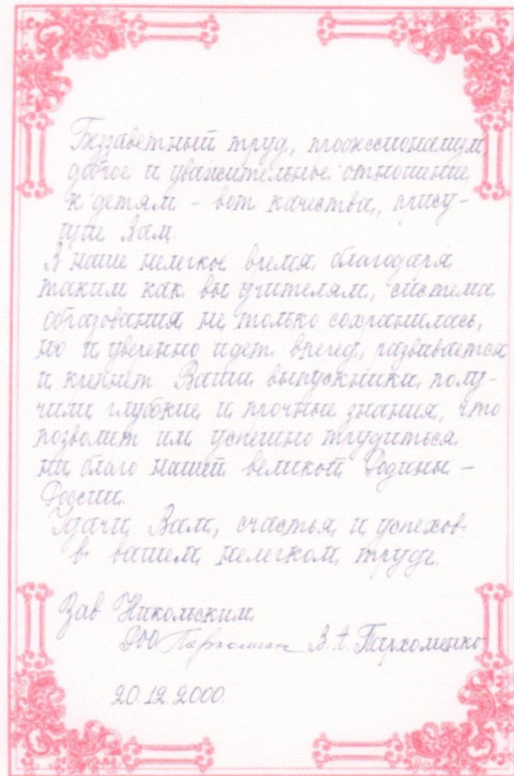 Беззаветный труд, профессионализм,
доброе и уважительное отношение
к детям – вот качества, прису-
щие Вам.
В наше нелегкое время, благодаря
таким как вы учителям, система
образования не только сохранилась,
но и уверенно идет вперед, развивается
и крепнет. Ваши выпускники полу-
чили глубокие и прочные знания, что
позволит им успешно трудиться
на благо нашей великой Родины –
России.
Удачи Вам, счастья и успехов
в вашем нелегком труде.
Зав Никольским
РОО В. А. Пархоменко
20.12.2000.